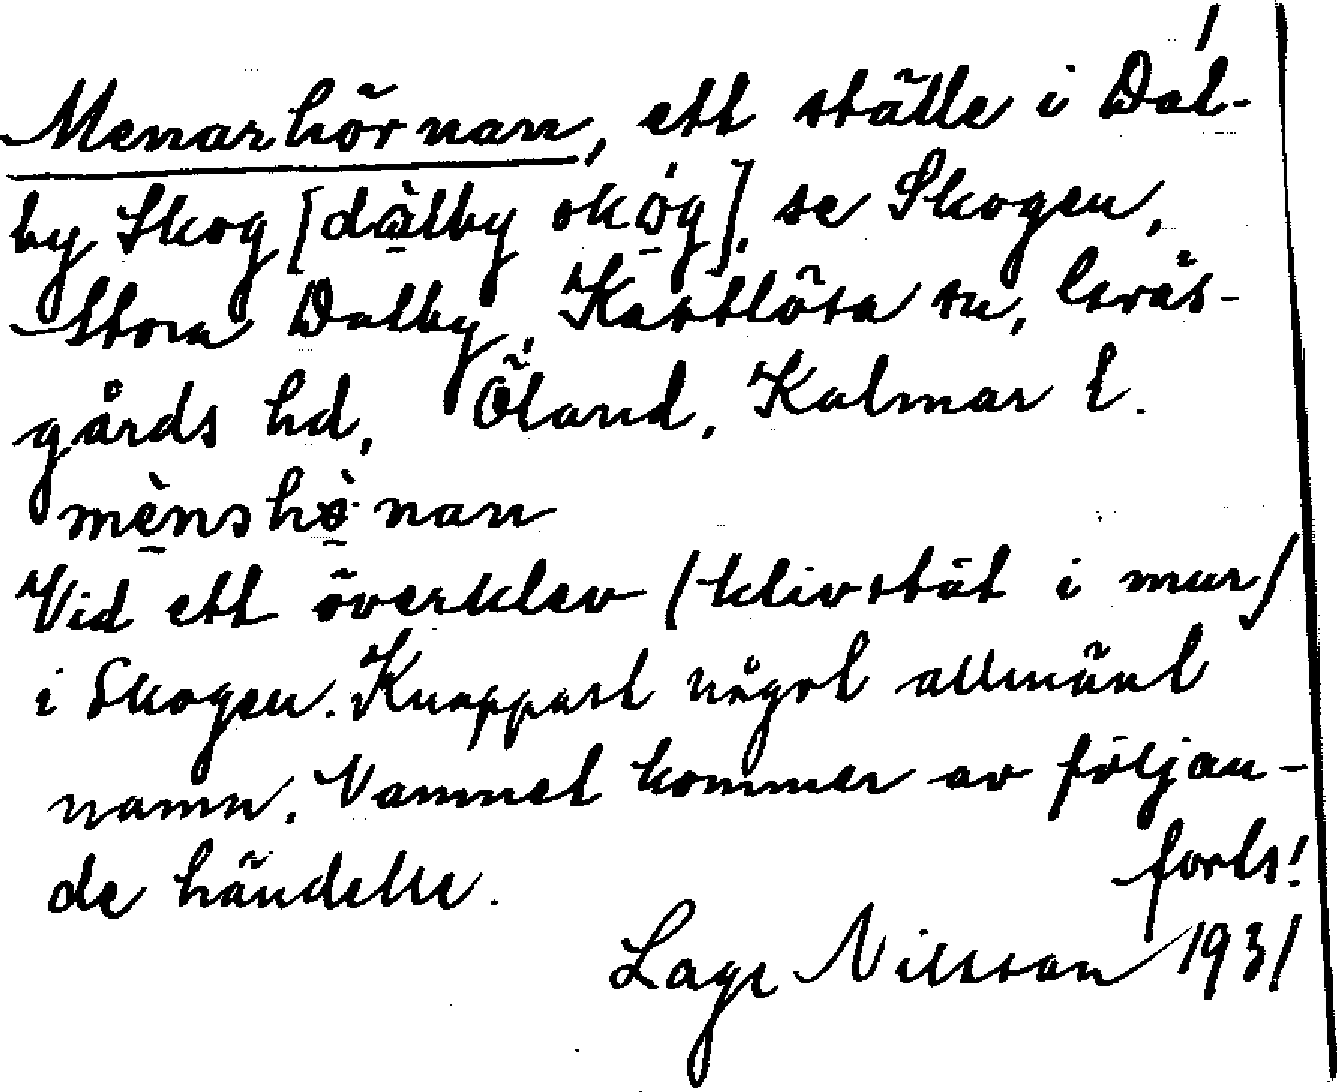 1
Menarhörnan, ett ställe i Dal-
by Skog [dàlby skòg], se Skogen,
Stora Dalby, Kastlösa sn, Gräs-
gårds hd, Öland, Kalmar l.
mènshò nan
Vid ett överklev (klivstät i mur)
i Skogen. Knappast något allmänt
namn. Namnet kommer av följan-
de händelse.
forts!
Lage Nilsson 1931